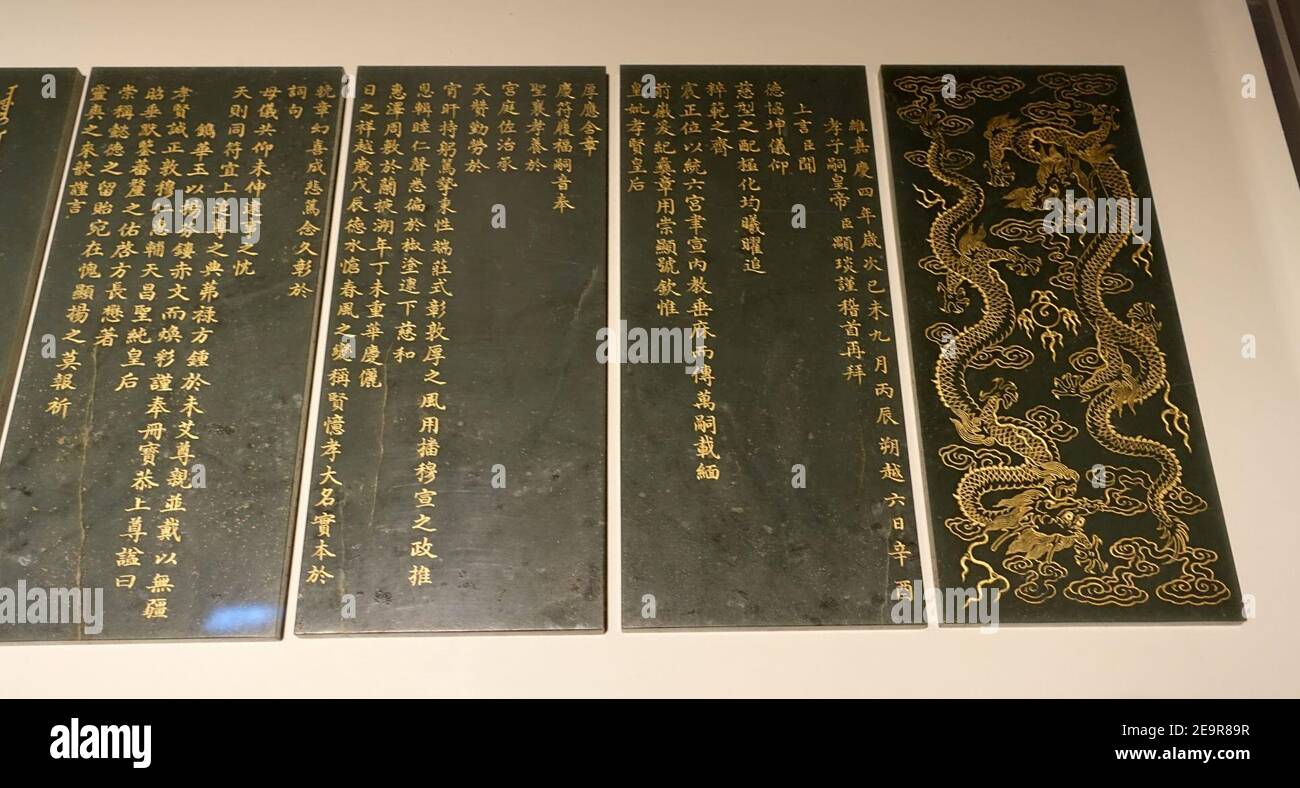 維嘉慶四年歲次己未九月丙辰朔越六日辛酉
孝子嗣皇帝臣顒琰謹稽首再拜
上言臣聞
德協坤儀仰
慈型之配極化均曦曜追
粹範之齊
宸正位以統六宮聿宣內教垂庥而傳萬嗣載緬
前徽爰紀彝章用崇顯號欽惟
皇妣孝賢皇后
厚應含章
慶符履福嗣音奉
聖襄孝養於
宮庭佐治承
天贊勤勞於
宵旰持躬篤摯秉性端莊式彰敦厚之風用播穆宣之政推
恩輯睦仁聲悉徧於椒塗逮下慈和
惠澤周敷於蘭掖溯年丁未重華慶儷
日之祥越歲戊辰德水愴春風之變稱賢憶孝大名實本於
輓章幻喜成悲篤念久彰於
詞句
母儀共仰未伸逮事之忱
天則同符宜上追尊之典茀祿方鍾於未艾尊親並戴以無疆
鐫華玉以揚芬鏤赤文而煥彩謹奉冊寶恭上尊諡曰
孝賢誠正敦穆仁惠輔天昌聖純皇后
貽垂默繫蕃釐之佑啓方長懋著
崇稱懿德之留貽宛在愧顯揚之莫報祈
靈爽之來歆謹言
alamy
Image ID: 2E9R89R
www.alamy.com